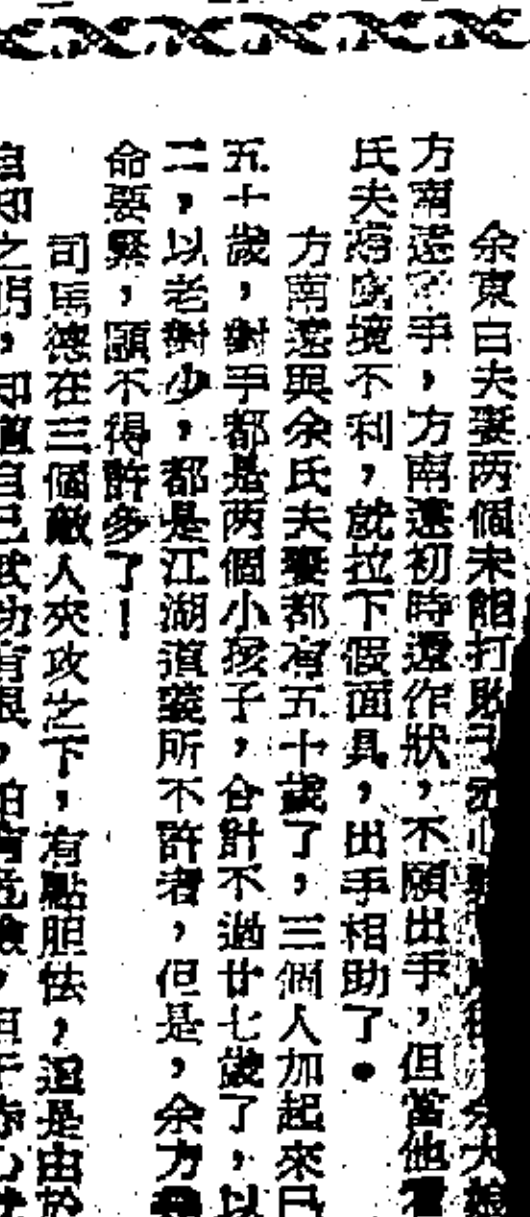 余東白夫妻两個未能打敗 余大娘
方南遠 手，方南遠初時還作狀，不願出手，但當他看
氏夫婦處境不利，就拉下假面具，出手相助了。
方南遠與余氏夫妻都有五十歲了，三個人加起來已
五十歲，對手都是两個小孩子，合計不過廿七歲了，以
二，以老對少，都是江湖道義所不許者，但是，余方
命要緊，顧不得許多了！
司馬德在三個敵人夾攻之下，有點胆怯，這是由於
自知之明，知道自己武功有限，怕有危險，